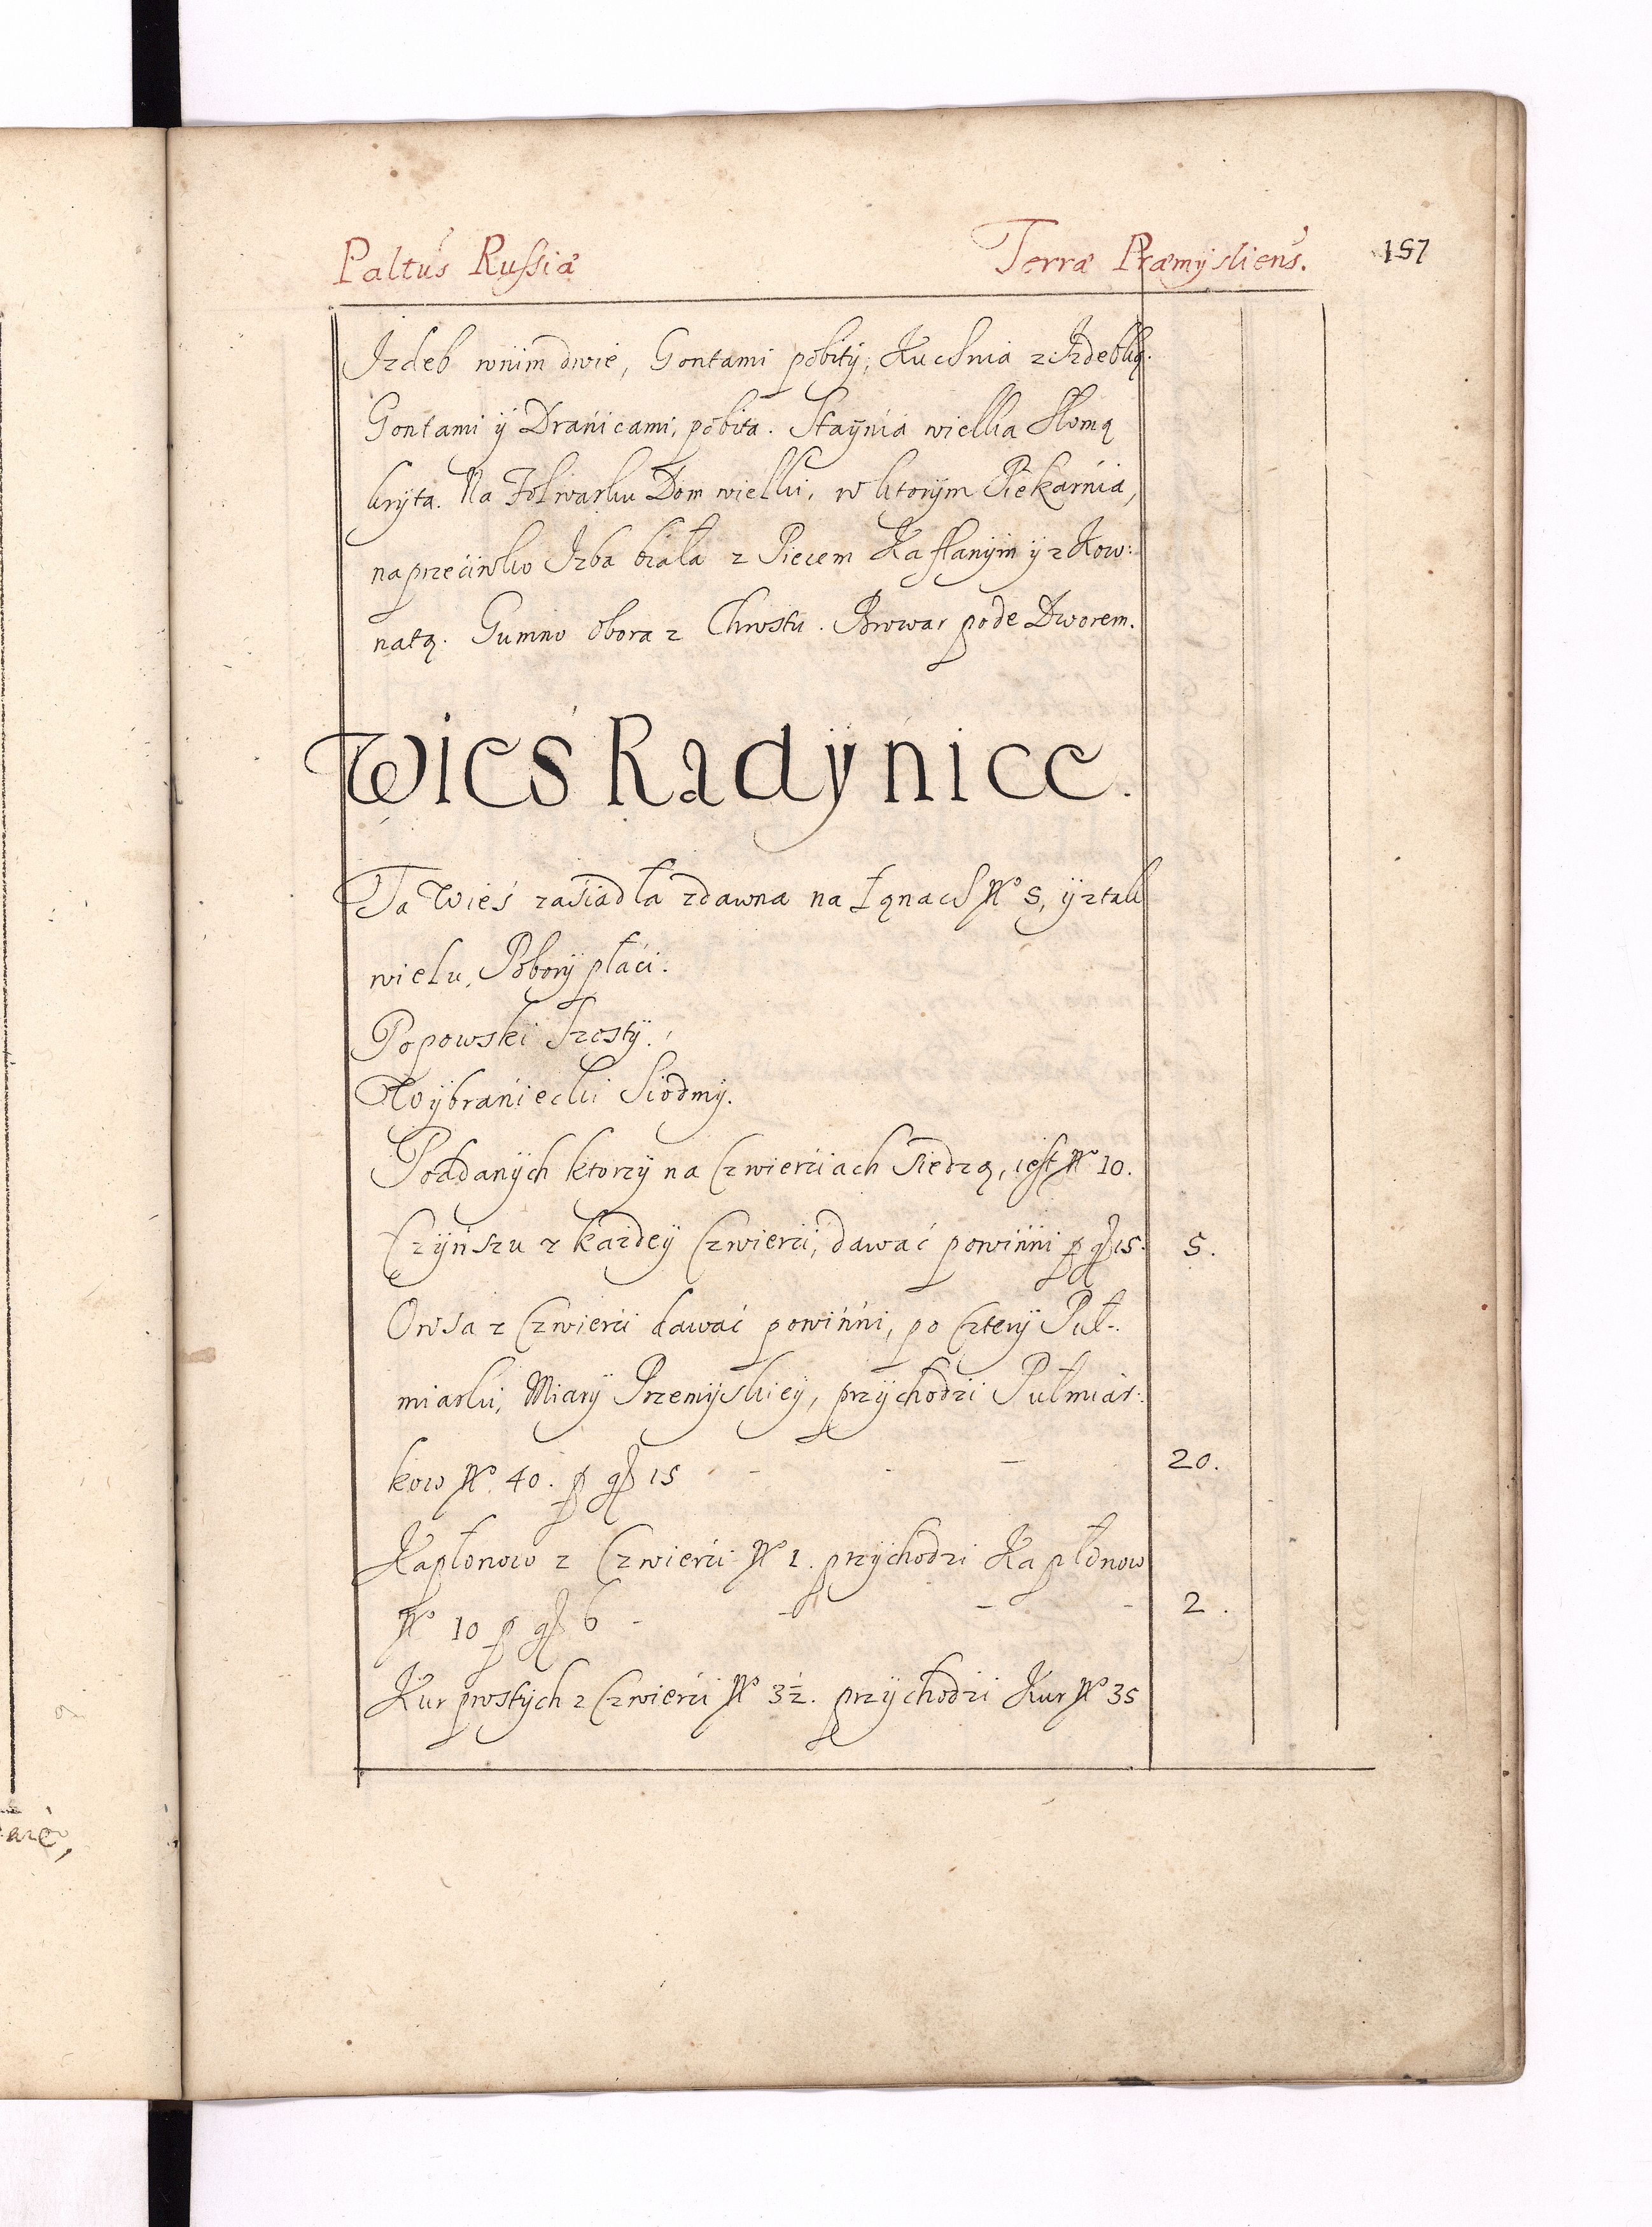 Paltus Russiæ Terræ Præmysliens. 157
Izdeb wnim dwie, Gontami pobity, Kuchnia z Izdebką
Gontami ÿ Dranicami, pobita. Staÿnia wielka słomą
krÿta. Na Folwarku Dom wielki, w ktorÿm Piekarnia,
naprzećiwko Izba biała z Piecem Kaflanÿm ÿ z Kow:
natą. Gumno obora z Chrostu. Browar pode Dworem.
Wieś Radÿnice.
Ta Wieś zaśiadła zdawna na Łąnach No 5, ÿ z tak
wielu, Poborÿ płaći.
Popowski Szostÿ.
Wÿbraniecki Siodmÿ.
Poddanÿch ktorzÿ na Czwierćiach Siedzą, iest No 10.
Czÿnszu z kazdeÿ Czwierći, dawać powinni p gr 15. 5.
Owsa z Czwierći dawać powinni, po Czterÿ Puł:
miarki, Miarÿ Przemÿskieÿ, przÿchodzi Pułmiar:
kow No 40. p gr 15 - - - 20.
Kapłonow z Czwierći No 1. przÿchodzi Kapłonow
No 10 p gr 6 - - - - 2.
Kur prostÿch z Czwierći No 3½. przÿchodzi Kur No 35